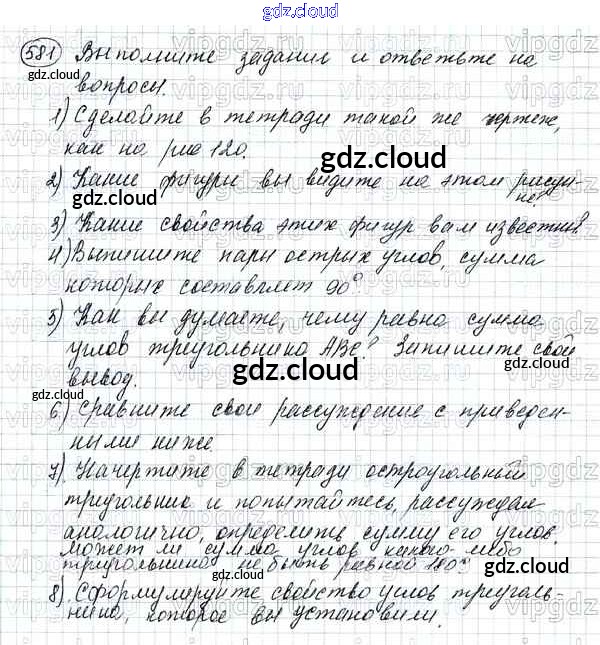 gdz.cloud
581 Выполните задания и ответьте на
вопросы.
1) Сделайте в тетради такой же чертеж,
как на рис 120.
2) Какие фигуры вы видите на этом рисун-
ке?
3) Какие свойства этих фигур вам известны?
4) Выпишите пары острых углов, сумма
которых составляет 90°
5) Как вы думаете, чему равна сумма
углов треугольника АВС? Запишите свой
вывод.
6) Сравните свои рассуждение с приведен-
ными ниже.
7) Начертите в тетради остроугольный
треугольник и попытайтесь, рассуждая
аналогично, определить сумму его углов.
Может ли сумма углов какого-либо
треугольника не быть равной 180°?
8) Сформулируйте свойство углов треуголь-
ника, которое вы установили.
gdz.cloud
gdz.cloud
gdz.cloud
gdz.cloud
gdz.cloud
gdz.cloud
gdz.cloud
gdz.cloud
gdz.cloud
gdz.cloud
gdz.cloud